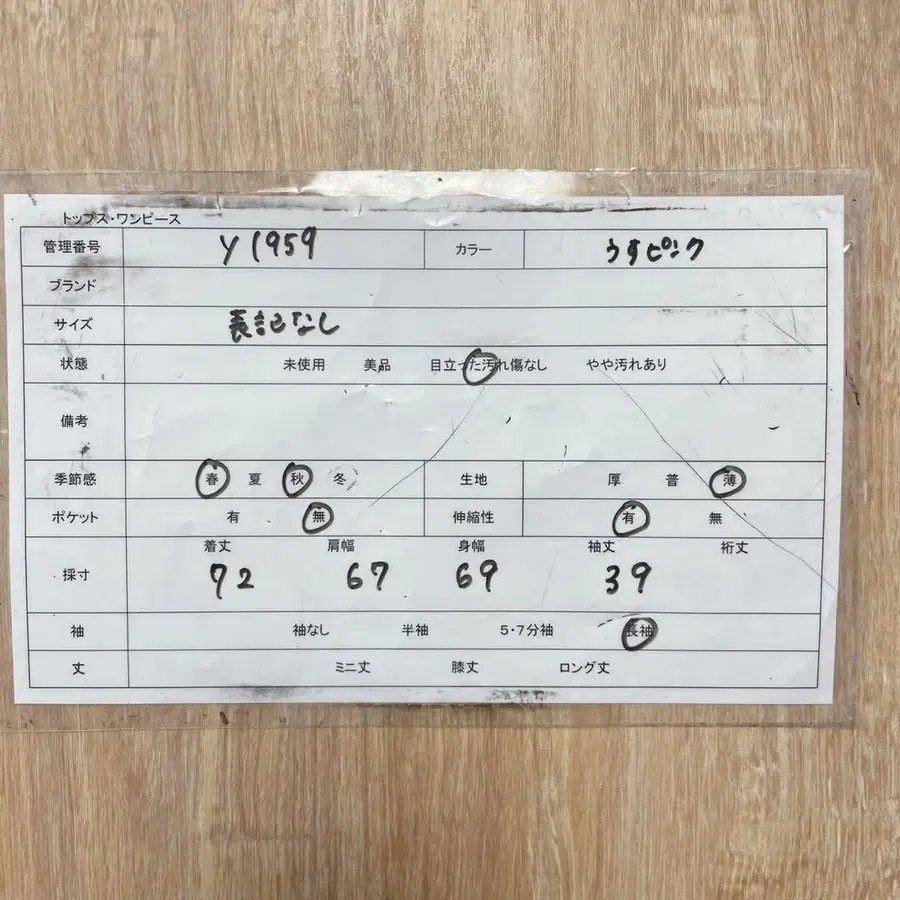 トップス・ワンピース
管理番号 Y1959 カラー うすピンク
ブランド
サイズ 表記なし
状態 未使用 美品 目立った汚れ傷なし やや汚れあり
備考
季節感 春 夏 秋 冬 生地 厚 普 薄
ポケット 有 無 伸縮性 有 無
着丈 肩幅 身幅 袖丈 裄丈
採寸 72 67 69 39
袖 袖なし 半袖 5・7分袖 長袖
丈 ミニ丈 膝丈 ロング丈